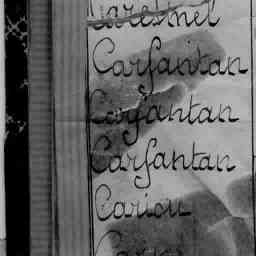 Carfantan
Carfantan
Carfantan
Cariou